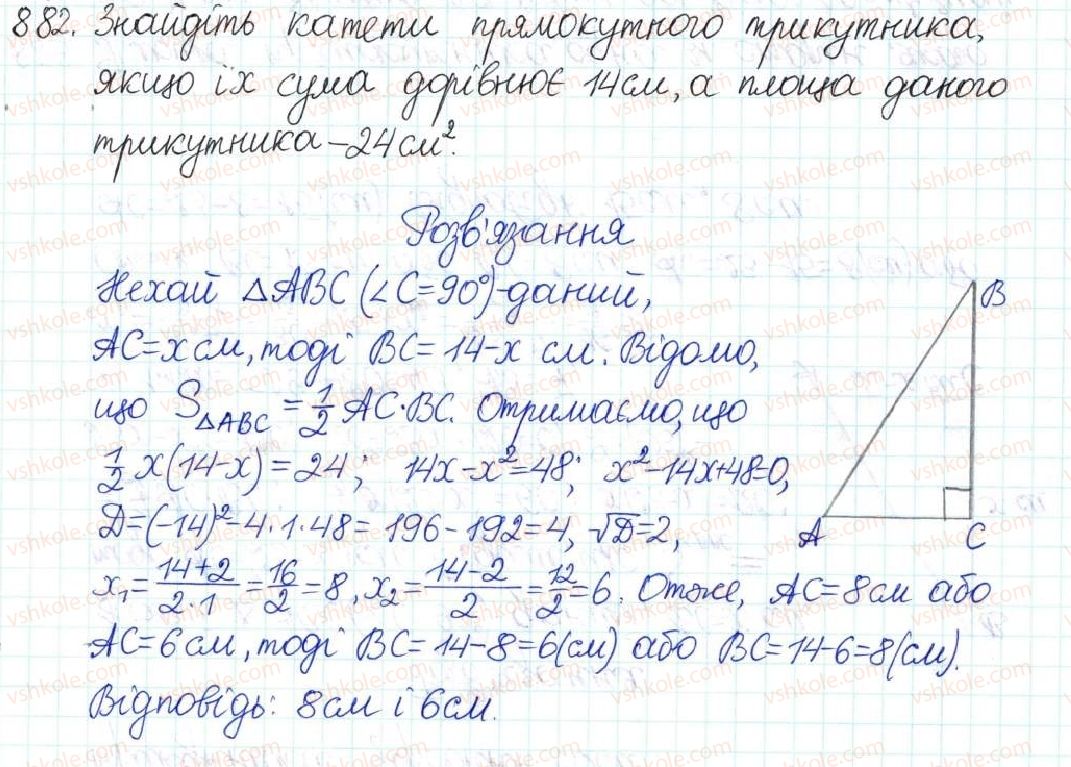 882. Знайдіть катети прямокутного трикутника,
якщо їх сума дорівнює 14 см, а площа даного
трикутника – 24 см².
Розв'язання
Нехай △ABC (∠C=90°)-даний,
AC=x см, тоді BC= 14-x см. Відомо,
що S△ABC = 1/2 AC·BC. Отримаємо, що
1/2 x(14-x)=24; 14x-x²=48; x²-14x+48=0,
D=(-14)²-4·1·48=196-192=4, √D=2,
x₁=(14+2)/(2·1)=16/2=8, x₂=(14-2)/2=12/2=6. Отже, AC=8см або
AC=6см, тоді BC=14-8=6(см) або BC=14-6=8(см).
Відповідь: 8см і 6см.
B
A
C
vshkole.com